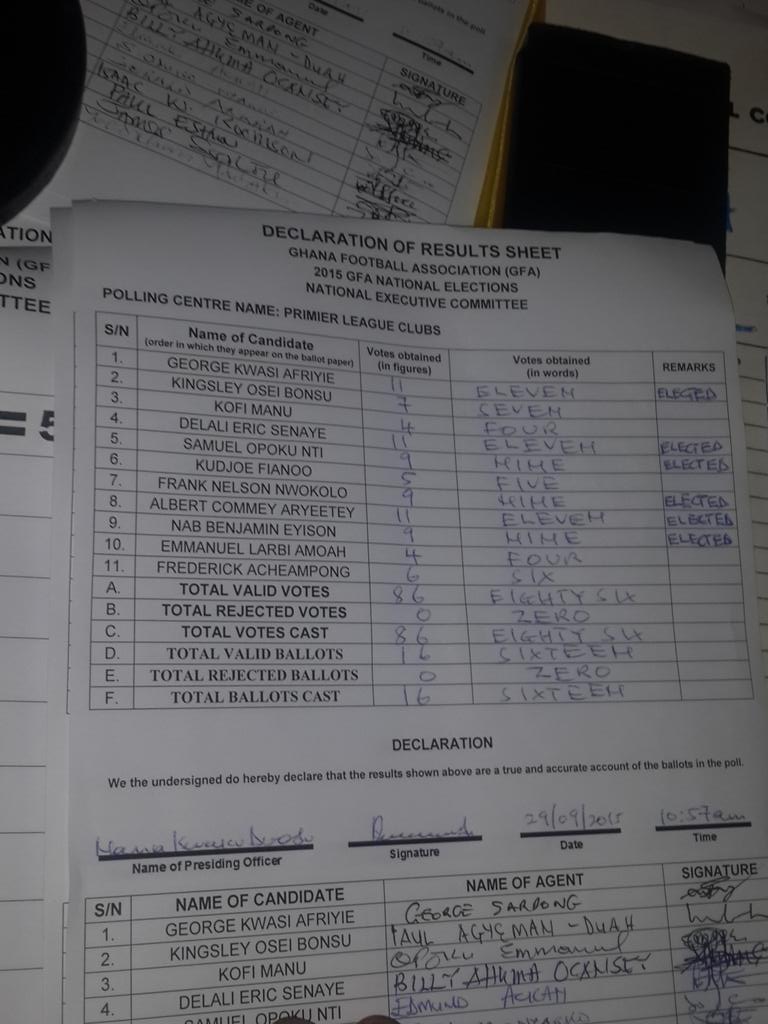 ballots in the poll
Date
Time
OF AGENT
SIGNATURE
SARPONG
AGYEMAN - DUAH
OPOKU Emmanuel
BILLY ATHUMA OCKNISEY
ISAAC K.
PAUL
ATION
N (GF
ONS
TTEE
= 5
DECLARATION OF RESULTS SHEET
GHANA FOOTBALL ASSOCIATION (GFA)
2015 GFA NATIONAL ELECTIONS
NATIONAL EXECUTIVE COMMITTEE
POLLING CENTRE NAME: PRIMIER LEAGUE CLUBS
S/N Name of Candidate (order in which they appear on the ballot paper) Votes obtained (in figures) Votes obtained (in words) REMARKS
1. GEORGE KWASI AFRIYIE 11 ELEVEN ELECTED
2. KINGSLEY OSEI BONSU 7 SEVEN
3. KOFI MANU 4 FOUR
4. DELALI ERIC SENAYE 11 ELEVEN ELECTED
5. SAMUEL OPOKU NTI 9 NINE ELECTED
6. KUDJOE FIANOO 5 FIVE
7. FRANK NELSON NWOKOLO 9 NINE ELECTED
8. ALBERT COMMEY ARYEETEY 11 ELEVEN ELECTED
9. NAB BENJAMIN EYISON 9 NINE ELECTED
10. EMMANUEL LARBI AMOAH 4 FOUR
11. FREDERICK ACHEAMPONG 6 SIX
A. TOTAL VALID VOTES 86 EIGHTY SIX
B. TOTAL REJECTED VOTES 0 ZERO
C. TOTAL VOTES CAST 86 EIGHTY SIX
D. TOTAL VALID BALLOTS 16 SIXTEEN
E. TOTAL REJECTED BALLOTS 0 ZERO
F. TOTAL BALLOTS CAST 16 SIXTEEN
DECLARATION
We the undersigned do hereby declare that the results shown above are a true and accurate account of the ballots in the poll.
29/09/2015 10:57am
Name of Presiding Officer Signature Date Time
S/N NAME OF CANDIDATE NAME OF AGENT SIGNATURE
1. GEORGE KWASI AFRIYIE GEORGE SARPONG
2. KINGSLEY OSEI BONSU PAUL AGYEMAN - DUAH
3. KOFI MANU OPOKU Emmanuel
4. DELALI ERIC SENAYE BILLY ATHUMA OCKNISEY
SAMUEL OPOKU NTI EDMUND ACKAH